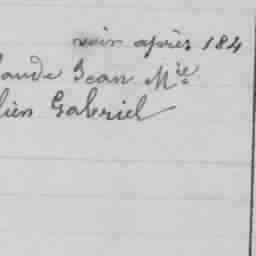 voir après 184
laude Jean Mie
lien Gabriel